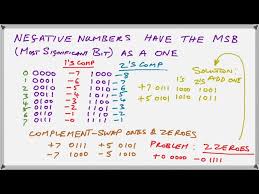 NEGATIVE NUMBERS HAVE THE MSB
(MOST SIGNIFICANT BIT) AS A ONE
1'S COMP 2'S COMP SOLUTION
0 0000 -7 1000 -8 1'S 2'S ADD ONE
1 0001 -6 1001 -7 +7 0111 1000 1001
2 0010 -5 1010 -6 +5 0101 1010 1011
3 0011 -4 1011 -5
4 0100 -3 1100 -4
5 0101 -2 1101 -3
6 0110 -1 1110 -2
7 0111 -0 1111 -1
COMPLEMENT-SWAP ONES & ZEROES
+7 0111 +5 0101 PROBLEM: 2 ZEROES
-7 1000 -5 1010 +0 0000 -0 1111